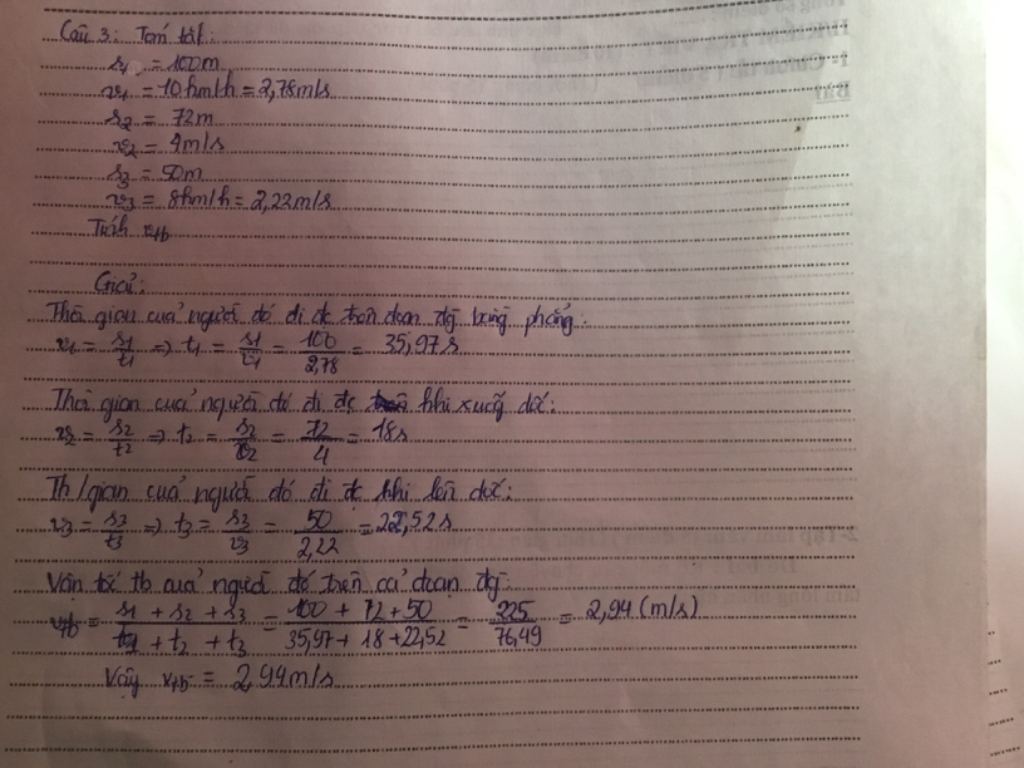 Câu 3: Tóm tắt:
s₁ = 100m
v₁ = 10km/h = 2,78m/s
s₂ = 72m
v₂ = 4m/s
s₃ = 50m
v₃ = 8km/h = 2,22m/s
Tính vtb
Giải:
Thời gian của người đó đi đc trên đoạn đg bằng phẳng:
v₁ = s₁/t₁ => t₁ = s₁/v₁ = 100/2,78 = 35,97s
Thời gian của người đó đi đc khi xuống dốc:
v₂ = s₂/t₂ => t₂ = s₂/v₂ = 72/4 = 18s
Th/gian của người đó đi đc khi lên dốc:
v₃ = s₃/t₃ => t₃ = s₃/v₃ = 50/2,22 = 22,52s
Vận tốc tb của người đó trên cả đoạn đg:
vtb = (s₁ + s₂ + s₃)/(t₁ + t₂ + t₃) = (100 + 72 + 50)/(35,97 + 18 + 22,52) = 225/76,49 = 2,94 (m/s)
Vậy vtb = 2,94m/s